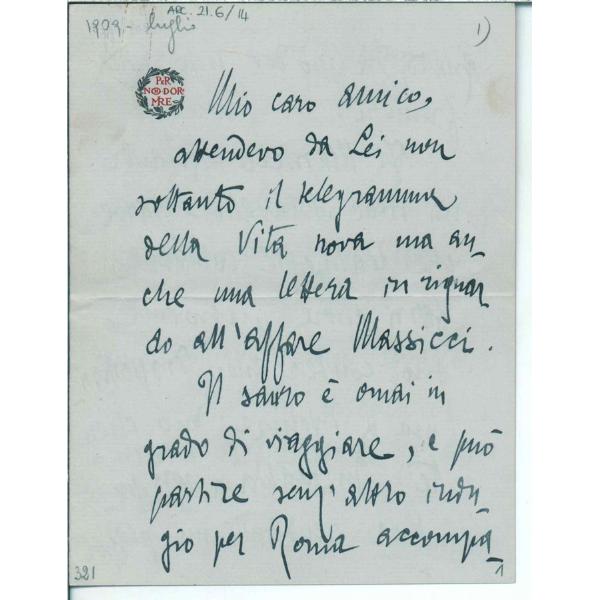 ARC. 21.6/14
1909 - luglio
1)
PER
NON DOR
MIRE
Mio caro amico,
attendevo da Lei non
soltanto il telegramma
della Vita nova ma an-
che una lettera in riguar-
do all'affare Massicci.
Il sauro è omai in
grado di viaggiare, e può
partire senz'altro indu-
gio per Roma accompa-
321
1